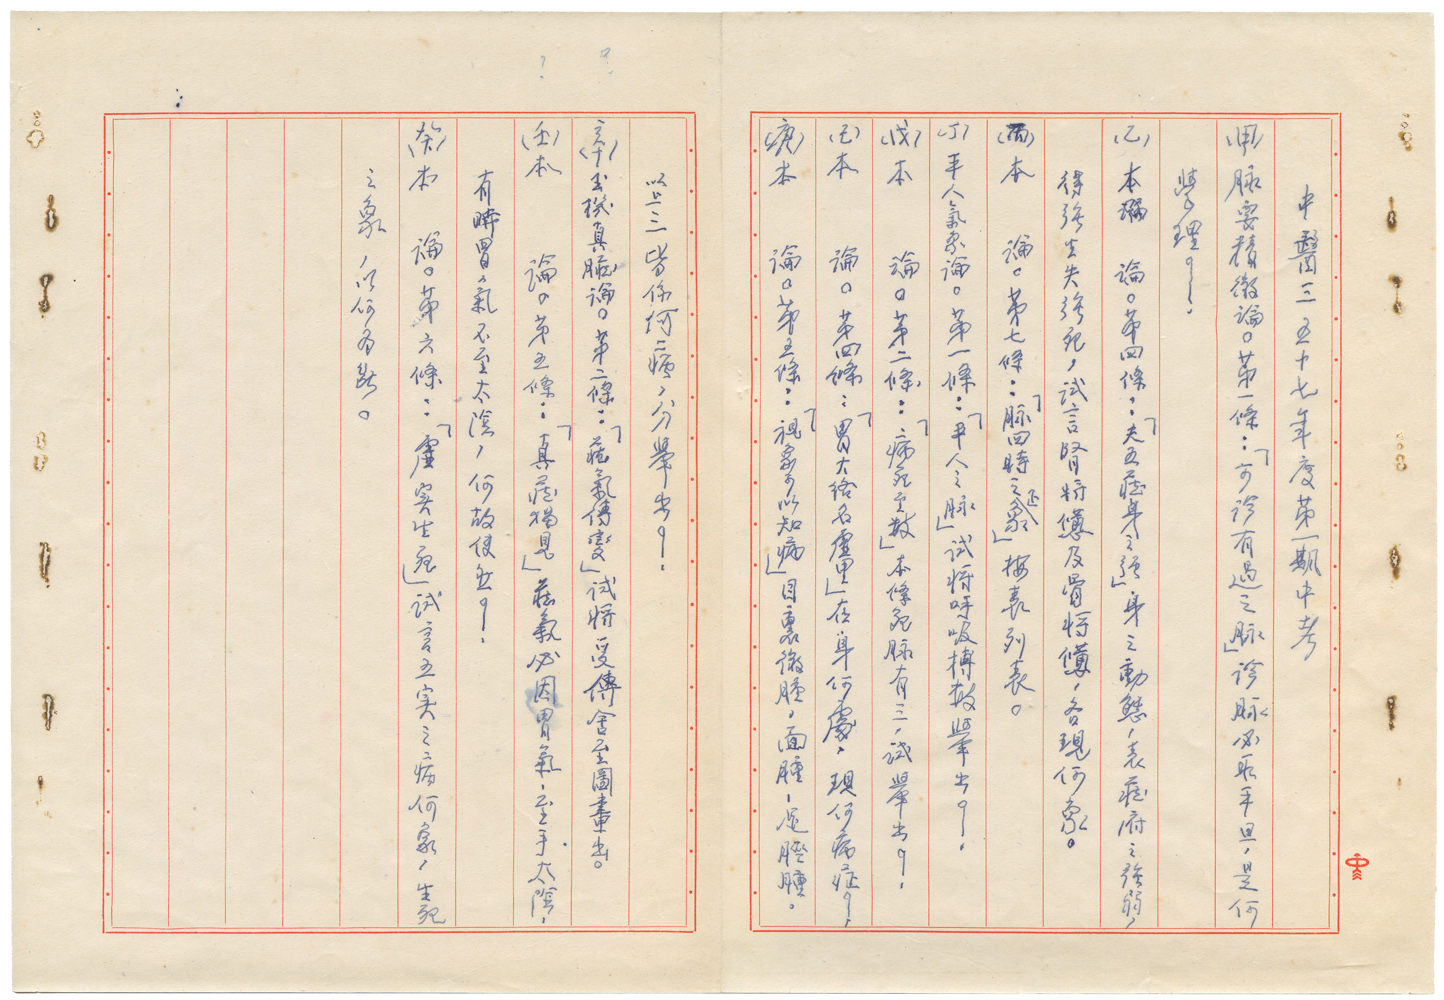 中醫三五十七年度第一期中考
(甲)脉要精微論。第一條：「可診有過之脉」診脉必取平旦，是何
學理？！
(乙)本論 論。第四條：「夫五藏身之強」身之動態，表藏府之強弱，
得強生失強死，試言腎將憊及骨將憊，各現何象。
(丙)本 論。第七條：「脉四時之正象」按表列表。
(丁)平人氣象論。第一條：「平人之脉」試將呼吸搏數舉出？！
(戊)本 論。第二條：「病死至數」本條死脉有三，試舉出？！
(己)本 論。第四條：「胃大絡名虛里」在身何處，現何病症？！
(庚)本 論。第五條：「視象可以知病」目裏微腫，面腫，足脛腫。
以上三皆係何二病，分舉出？！
(辛)玉機真臟論。第二條：「藏氣傳變」試將受傳舍至圖畫出。
(壬)本 論。第五條：「真藏獨見」藏氣必因胃氣，至手太陰，
有時胃氣不至太陰，何故使然？！
(癸)本 論。第六條：「虛實生死」試言五實之病何象，生死
之象，以何為斷。